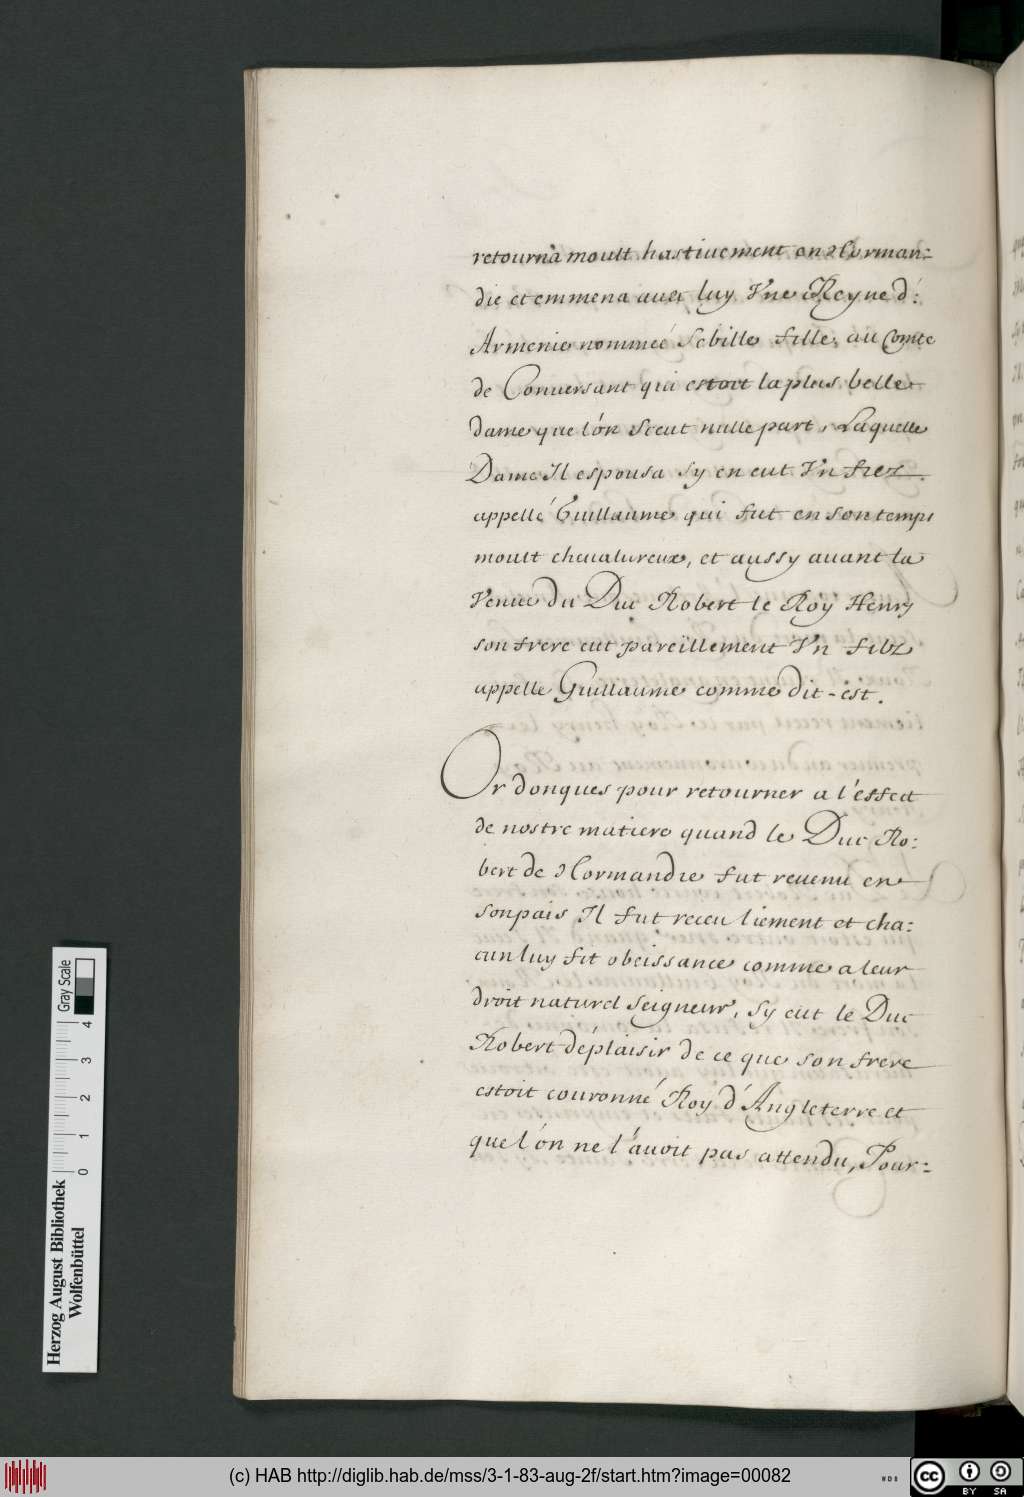 retourna moult hastiuement en Norman:
die et emmena auec luy Vne Reyne d':
Armenie nommeé Sebille fille au Comte
de Conuersant qui estoit la plus belle
dame que l'ón sceut nulle part, Laquelle
Dame Il espousa sy en eut Vn filz
appellé Guillaume qui fut en son temps
moult cheualureux, et aussy auant la
Venue du Duc Robert le Roÿ Henry
son frere eut pareillement Vn filz
appelle Guillaume comme dit-est.
Or donques pour retourner a l'éffect
de nostre matiere quand le Duc Ro:
bert de Normandie fut reuenu en
son pais Il fut receu liement et cha:
cun luy fit obeissance comme a leur
droit naturel Seigneur, Sy eut le Duc
Robert déplaisir de ce que son frere
estoit couronné Roy d'Angleterre et
que l'ón ne l'áuoit pas attendu, Pour:
Herzog August Bibliothek
Wolfenbüttel
Gray Scale
0 1 2 3 4
(c) HAB http://diglib.hab.de/mss/3-1-83-aug-2f/start.htm?image=00082
WDB
cc BY SA